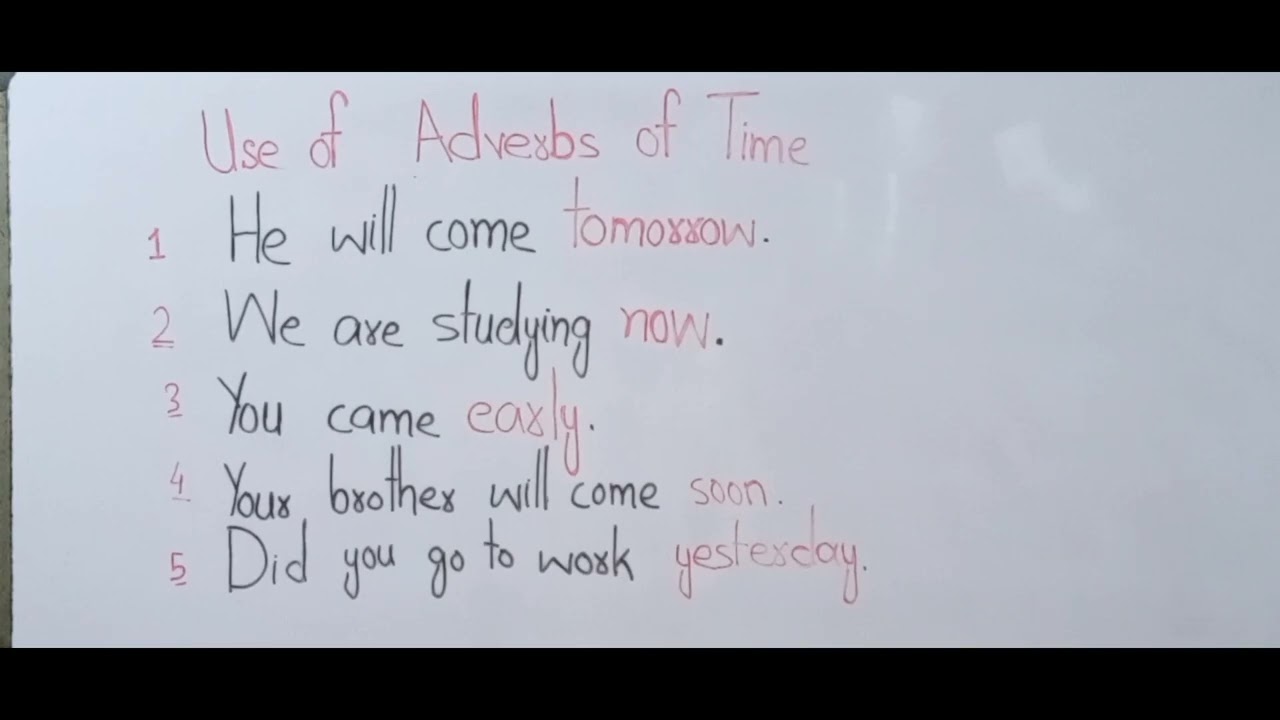 Use of Adverbs of Time
1 He will come tomorrow.
2 We are studying now.
3 You came early.
4 Your brother will come soon.
5 Did you go to work yesterday.